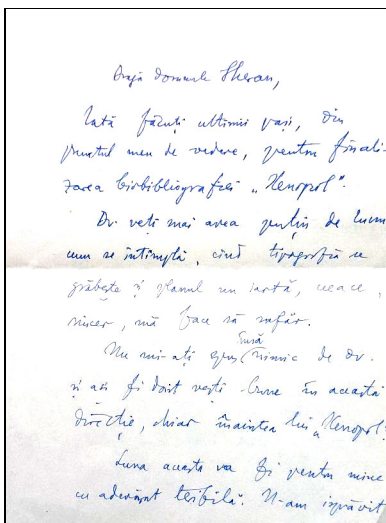 Dragă Domnule Theran,
Iată făcuți ultimii pași, din
punctul meu de vedere, pentru finali-
zarea biobibliografiei „Xenopol".
Dv. veți mai avea puțin de lucru
cum se întîmplă, cînd tipografia se
grăbește și planul nu iartă, ceace,
sincer, mă face să sufăr.
Nu mi-ați spus însă nimic de dv.
și aș fi dorit vești bune în această
direcție, chiar înaintea lui „Xenopol"
Luna aceasta va fi pentru mine
cu adevărat teribilă. N-am isprăvit